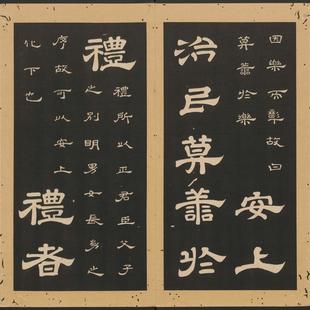 因樂而彰故曰
莫善於樂
安上
治民莫善於
禮
禮所以正君臣父子
之別明男女長幼之
序故可以安上
化下也
禮者